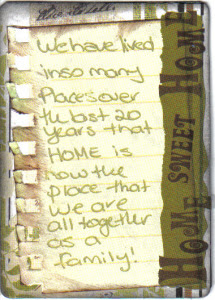 We have lived
in so many
Places over
the last 20
years that
HOME is
now the
place that
we are
all together
as a
family!
HOME SWEET HOME